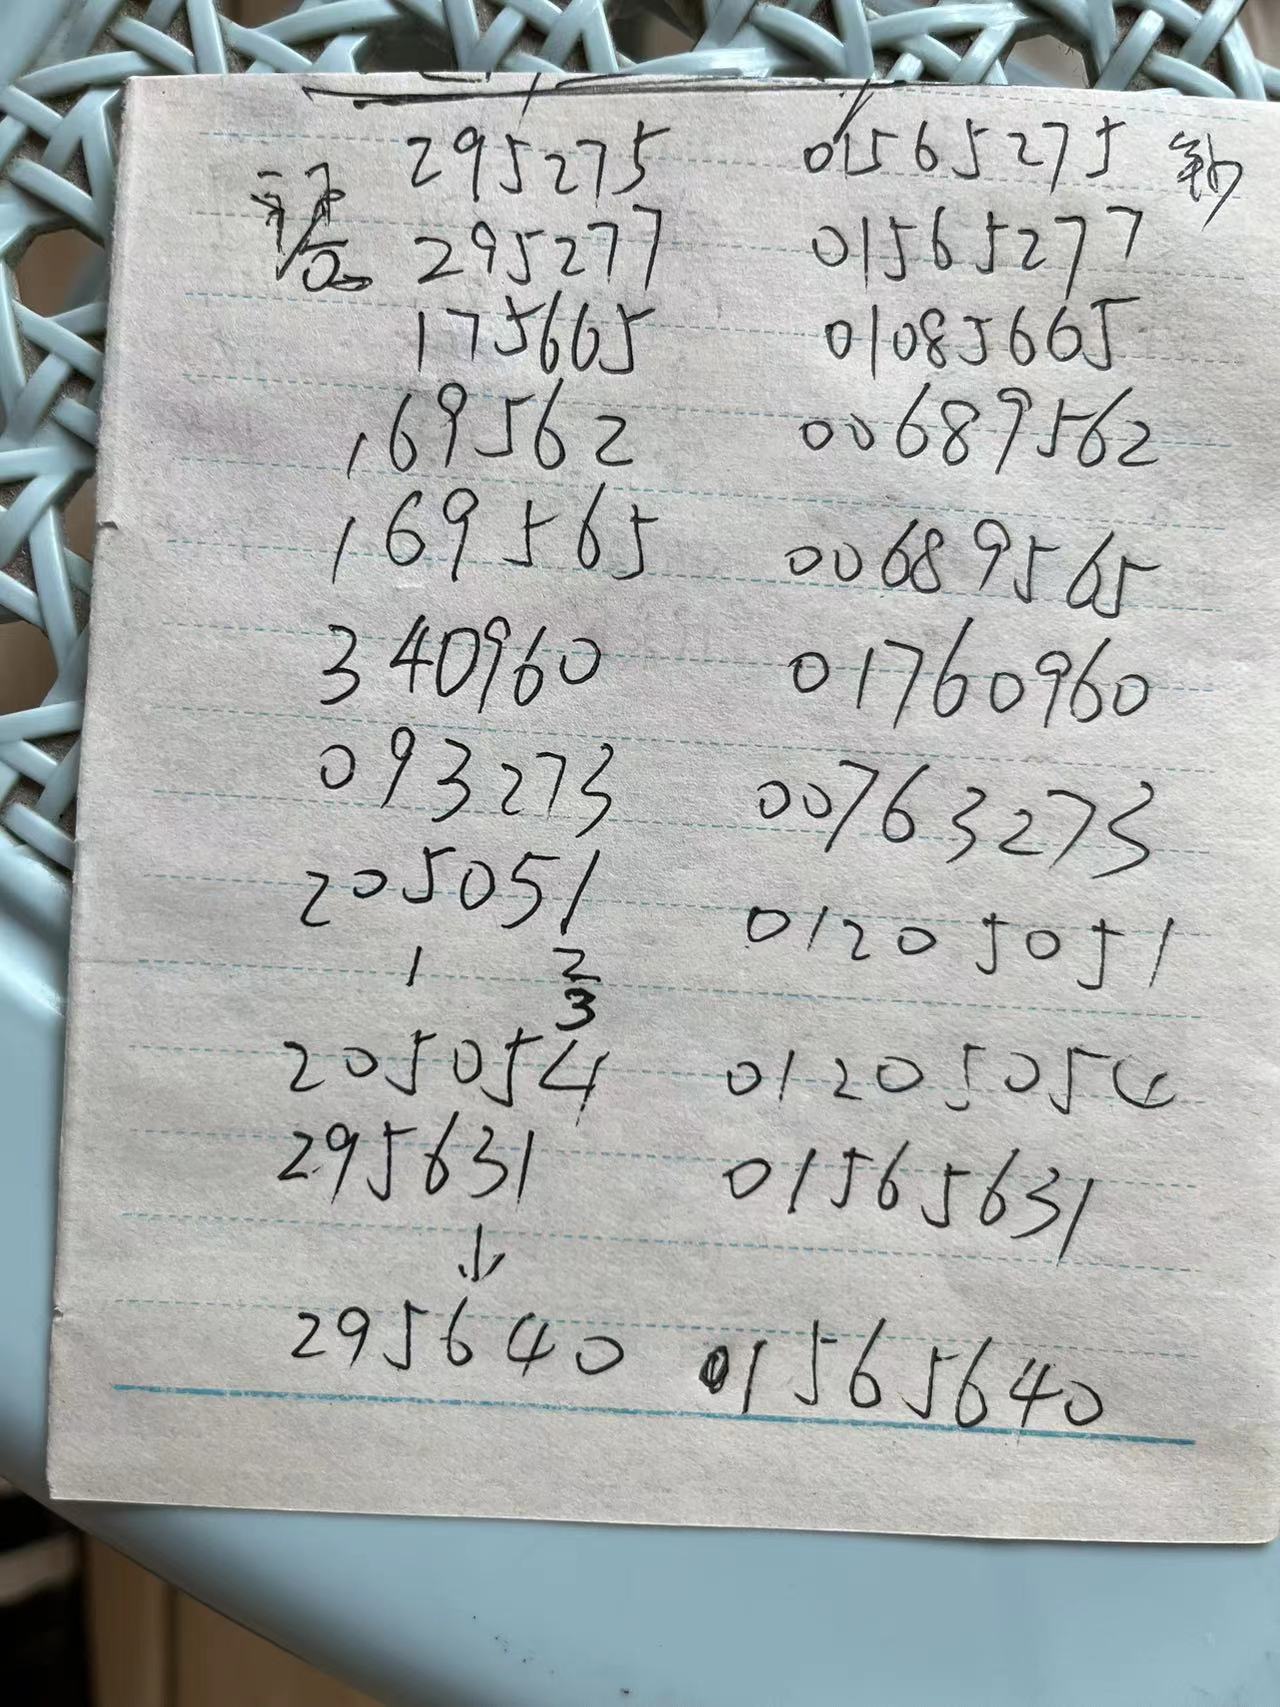 295275 01565275 钞
295277 01565277
175665 01085665
169562 00689562
169565 00689565
340960 01760960
093273 00763273
205051 01205051
1 2
3
205054 01205054
295631 01565631
↓
295640 01565640